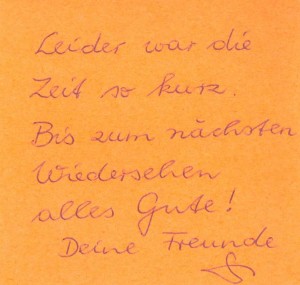 Leider war die
Zeit so kurz.
Bis zum nächsten
Wiedersehen
alles Gute!
Deine Freunde